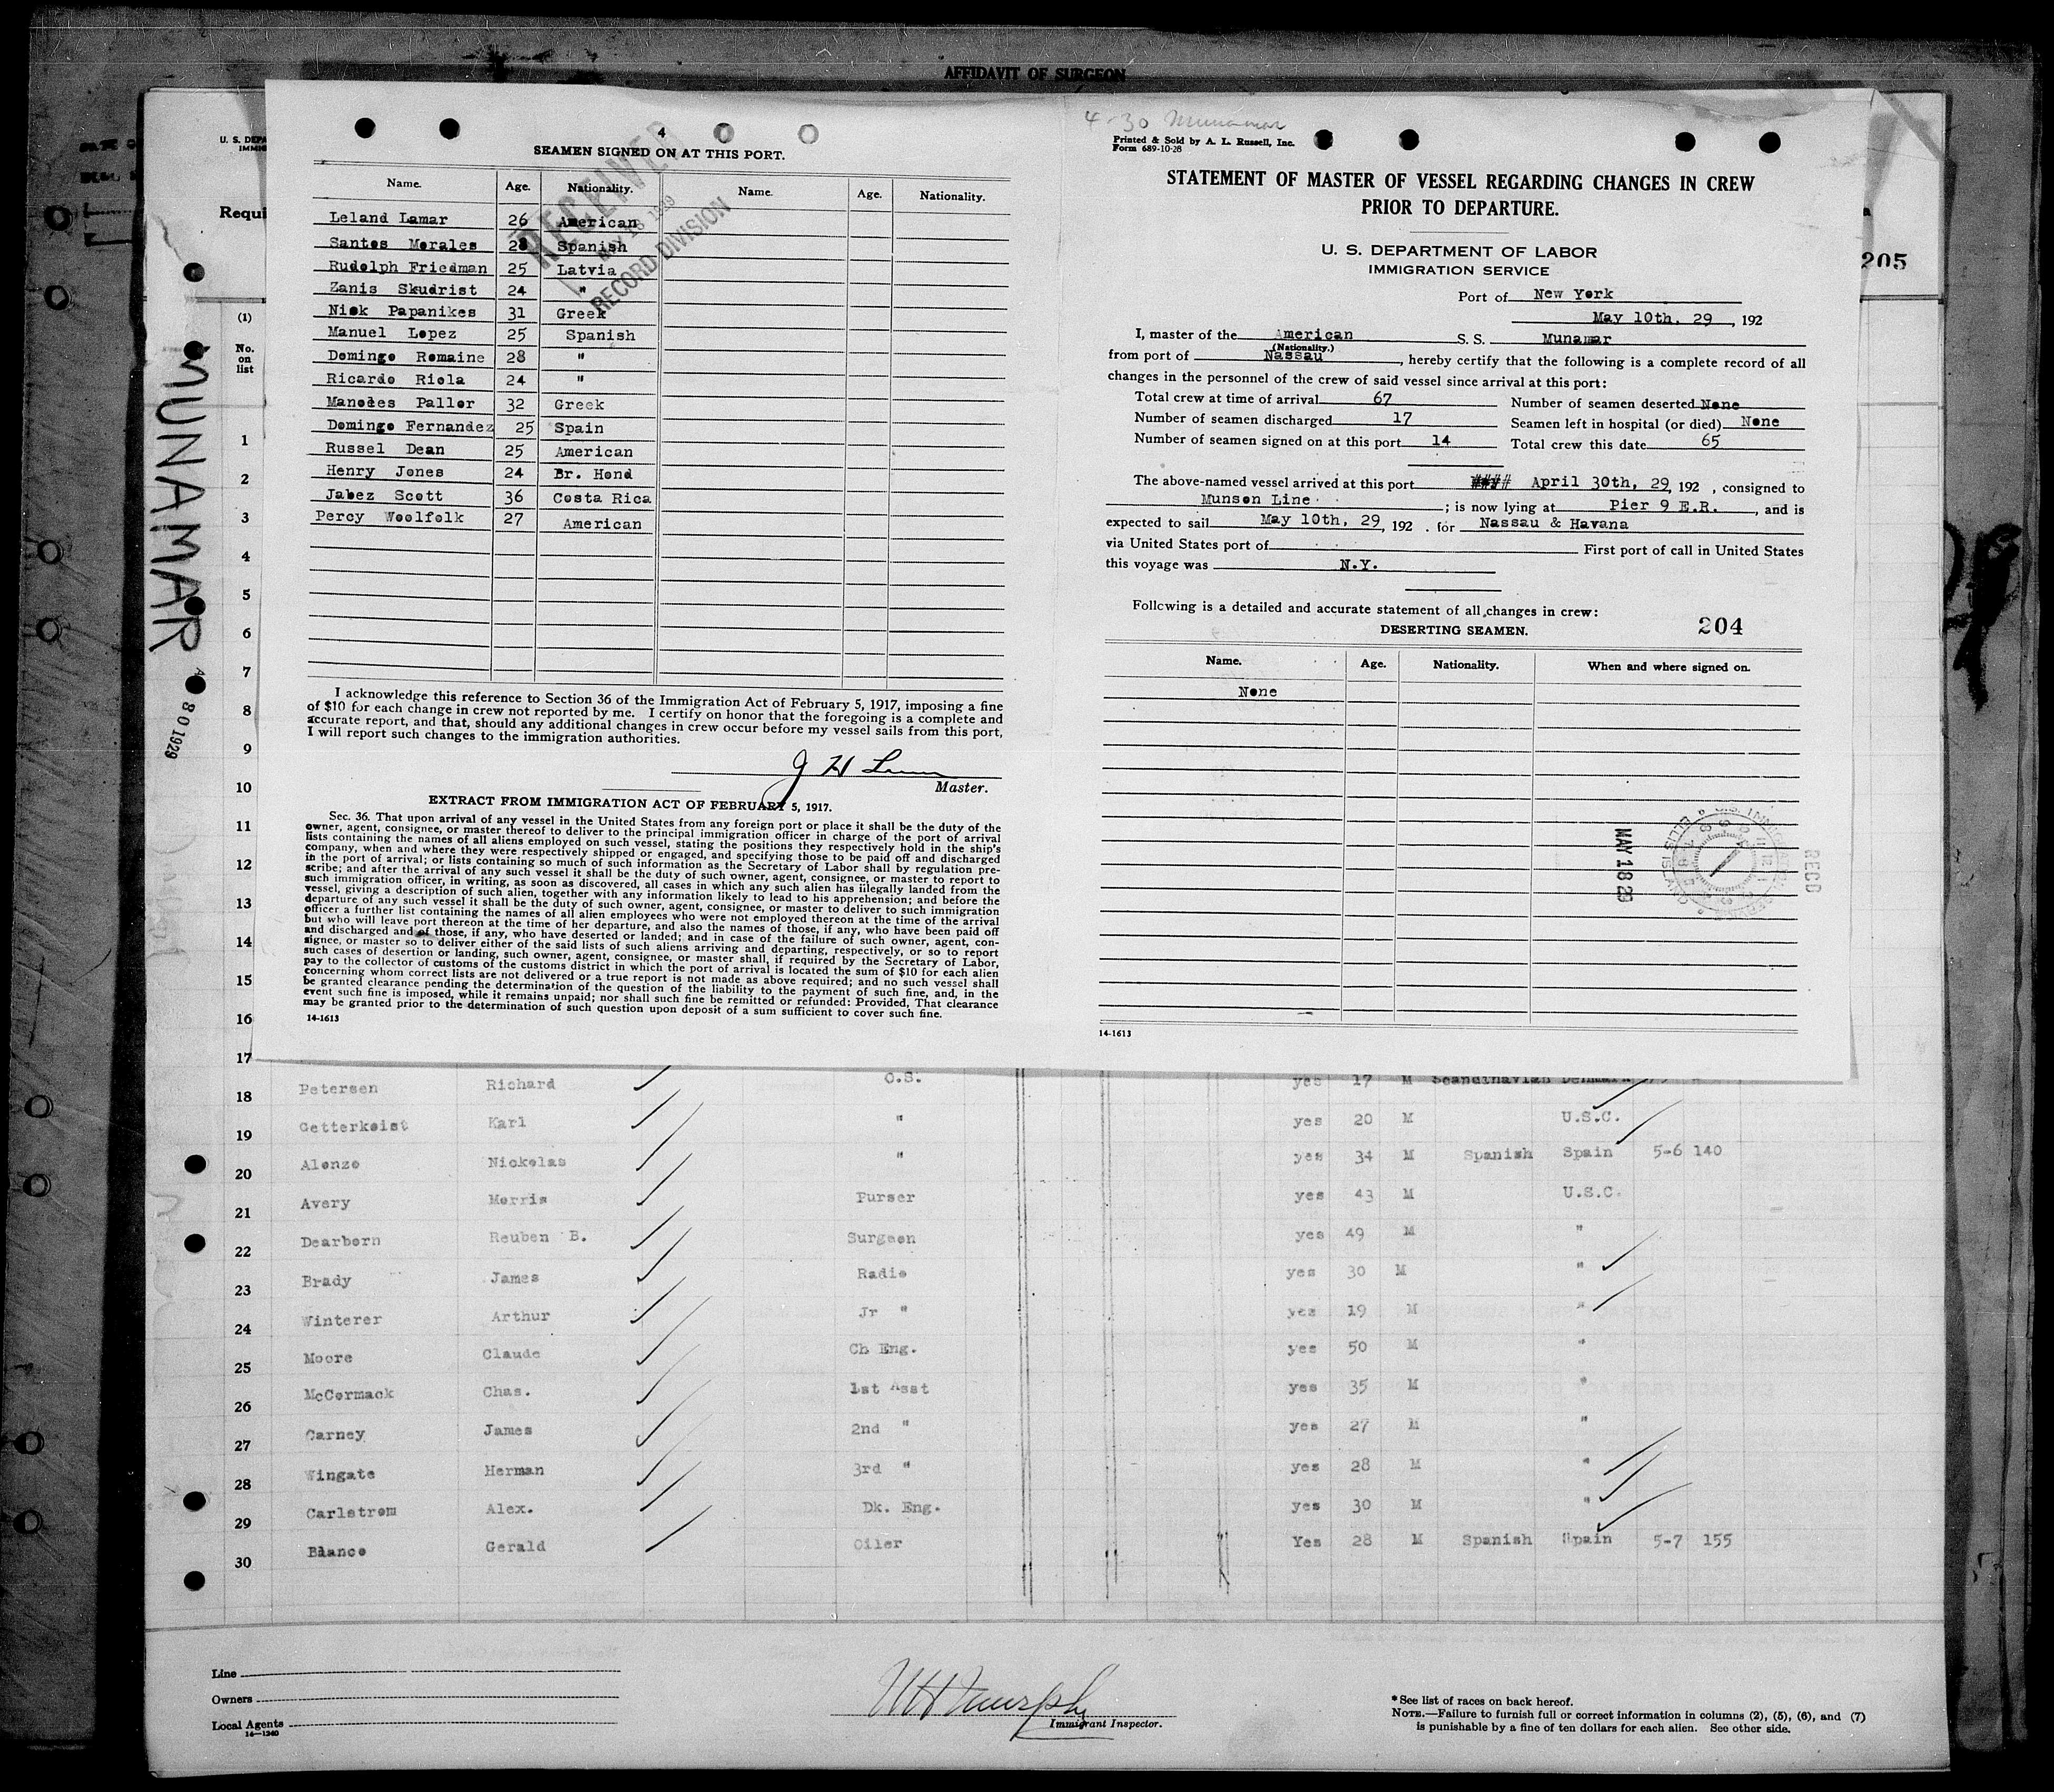 AFFIDAVIT OF SURGEON
U. S. DEPA
IMMIG
Requi
205
(1)
No.
on
list
MUNAMAR
1929
4
SEAMEN SIGNED ON AT THIS PORT.
RECEIVED
1929
RECORD DIVISION
Name. Age. Nationality. Name. Age. Nationality.
Leland Lamar 26 American
Santos Morales 28 Spanish
Rudolph Friedman 25 Latvia
Zanis Skudrist 24 "
Nick Papanikes 31 Greek
Manuel Lopez 25 Spanish
Domingo Romaine 28 "
Ricardo Riola 24 "
Manoles Paller 32 Greek
Domingo Fernandez 25 Spain
Russel Dean 25 American
Henry Jones 24 Br. Hond
Jabez Scott 36 Costa Rica
Percy Woolfolk 27 American
I acknowledge this reference to Section 36 of the Immigration Act of February 5, 1917, imposing a fine
of $10 for each change in crew not reported by me. I certify on honor that the foregoing is a complete and
accurate report, and that, should any additional changes in crew occur before my vessel sails from this port,
I will report such changes to the immigration authorities.
J H
Master.
EXTRACT FROM IMMIGRATION ACT OF FEBRUARY 5, 1917.
Sec. 36. That upon arrival of any vessel in the United States from any foreign port or place it shall be the duty of the
owner, agent, consignee, or master thereof to deliver to the principal immigration officer in charge of the port of arrival
lists containing the names of all aliens employed on such vessel, stating the positions they respectively hold in the ship's
company, when and where they were respectively shipped or engaged, and specifying those to be paid off and discharged
in the port of arrival; or lists containing so much of such information as the Secretary of Labor shall by regulation pre-
scribe; and after the arrival of any such vessel it shall be the duty of such owner, agent, consignee, or master to report to
such immigration officer, in writing, as soon as discovered, all cases in which any such alien has illegally landed from the
vessel, giving a description of such alien, together with any information likely to lead to his apprehension; and before the
departure of any such vessel it shall be the duty of such owner, agent, consignee, or master to deliver to such immigration
officer a further list containing the names of all alien employees who were not employed thereon at the time of the arrival
but who will leave port thereon at the time of her departure, and also the names of those, if any, who have been paid off
and discharged and of those, if any, who have deserted or landed; and in case of the failure of such owner, agent, con-
signee, or master so to deliver either of the said lists of such aliens arriving and departing, respectively, or so to report
such cases of desertion or landing, such owner, agent, consignee, or master shall, if required by the Secretary of Labor,
pay to the collector of customs of the customs district in which the port of arrival is located the sum of $10 for each alien
concerning whom correct lists are not delivered or a true report is not made as above required; and no such vessel shall
be granted clearance pending the determination of the question of the liability to the payment of such fine, and, in the
event such fine is imposed, while it remains unpaid; nor shall such fine be remitted or refunded: Provided, That clearance
may be granted prior to the determination of such question upon deposit of a sum sufficient to cover such fine.
14-1613
4-30 Munamar
Printed & Sold by A. L. Russell, Inc.
Form 689-10-28
STATEMENT OF MASTER OF VESSEL REGARDING CHANGES IN CREW
PRIOR TO DEPARTURE.
U. S. DEPARTMENT OF LABOR
IMMIGRATION SERVICE
Port of New York
May 10th, 29, 192
I, master of the American S. S. Munamar
(Nationality.)
from port of Nassau, hereby certify that the following is a complete record of all
changes in the personnel of the crew of said vessel since arrival at this port:
Total crew at time of arrival 67 Number of seamen deserted None
Number of seamen discharged 17 Seamen left in hospital (or died) None
Number of seamen signed on at this port 14 Total crew this date 65
The above-named vessel arrived at this port April 30th, 29, 192 , consigned to
Munson Line ; is now lying at Pier 9 E.R. , and is
expected to sail May 10th, 29, 192 . for Nassau & Havana
via United States port of First port of call in United States
this voyage was N.Y.
Following is a detailed and accurate statement of all changes in crew:
DESERTING SEAMEN. 204
Name. Age. Nationality. When and where signed on.
None
MAY 18 29
RECD
14-1613
1
2
3
4
5
6
7
8
9
10
11
12
13
14
15
16
17
18 Petersen Richard O.S. yes 17 M Scandinavian Denmark
19 Getterkeist Karl " yes 20 M U.S.C.
20 Alonzo Nickolas " yes 34 M Spanish Spain 5-6 140
21 Avery Morris Purser yes 43 M U.S.C.
22 Dearborn Reuben B. Surgeon yes 49 M "
23 Brady James Radio yes 30 M "
24 Winterer Arthur Jr " yes 19 M "
25 Moore Claude Ch Eng. yes 50 M "
26 McCormack Chas. 1st Asst yes 35 M "
27 Carney James 2nd " yes 27 M "
28 Wingate Herman 3rd " yes 28 M "
29 Carlstrom Alex. Dk. Eng. yes 30 M "
30 Blanco Gerald Oiler Yes 28 M Spanish Spain 5-7 155
Line
Owners
Local Agents
16-1240
Murphy
Immigrant Inspector.
* See list of races on back hereof.
NOTE.—Failure to furnish full or correct information in columns (2), (5), (6), and (7)
is punishable by a fine of ten dollars for each alien. See other side.